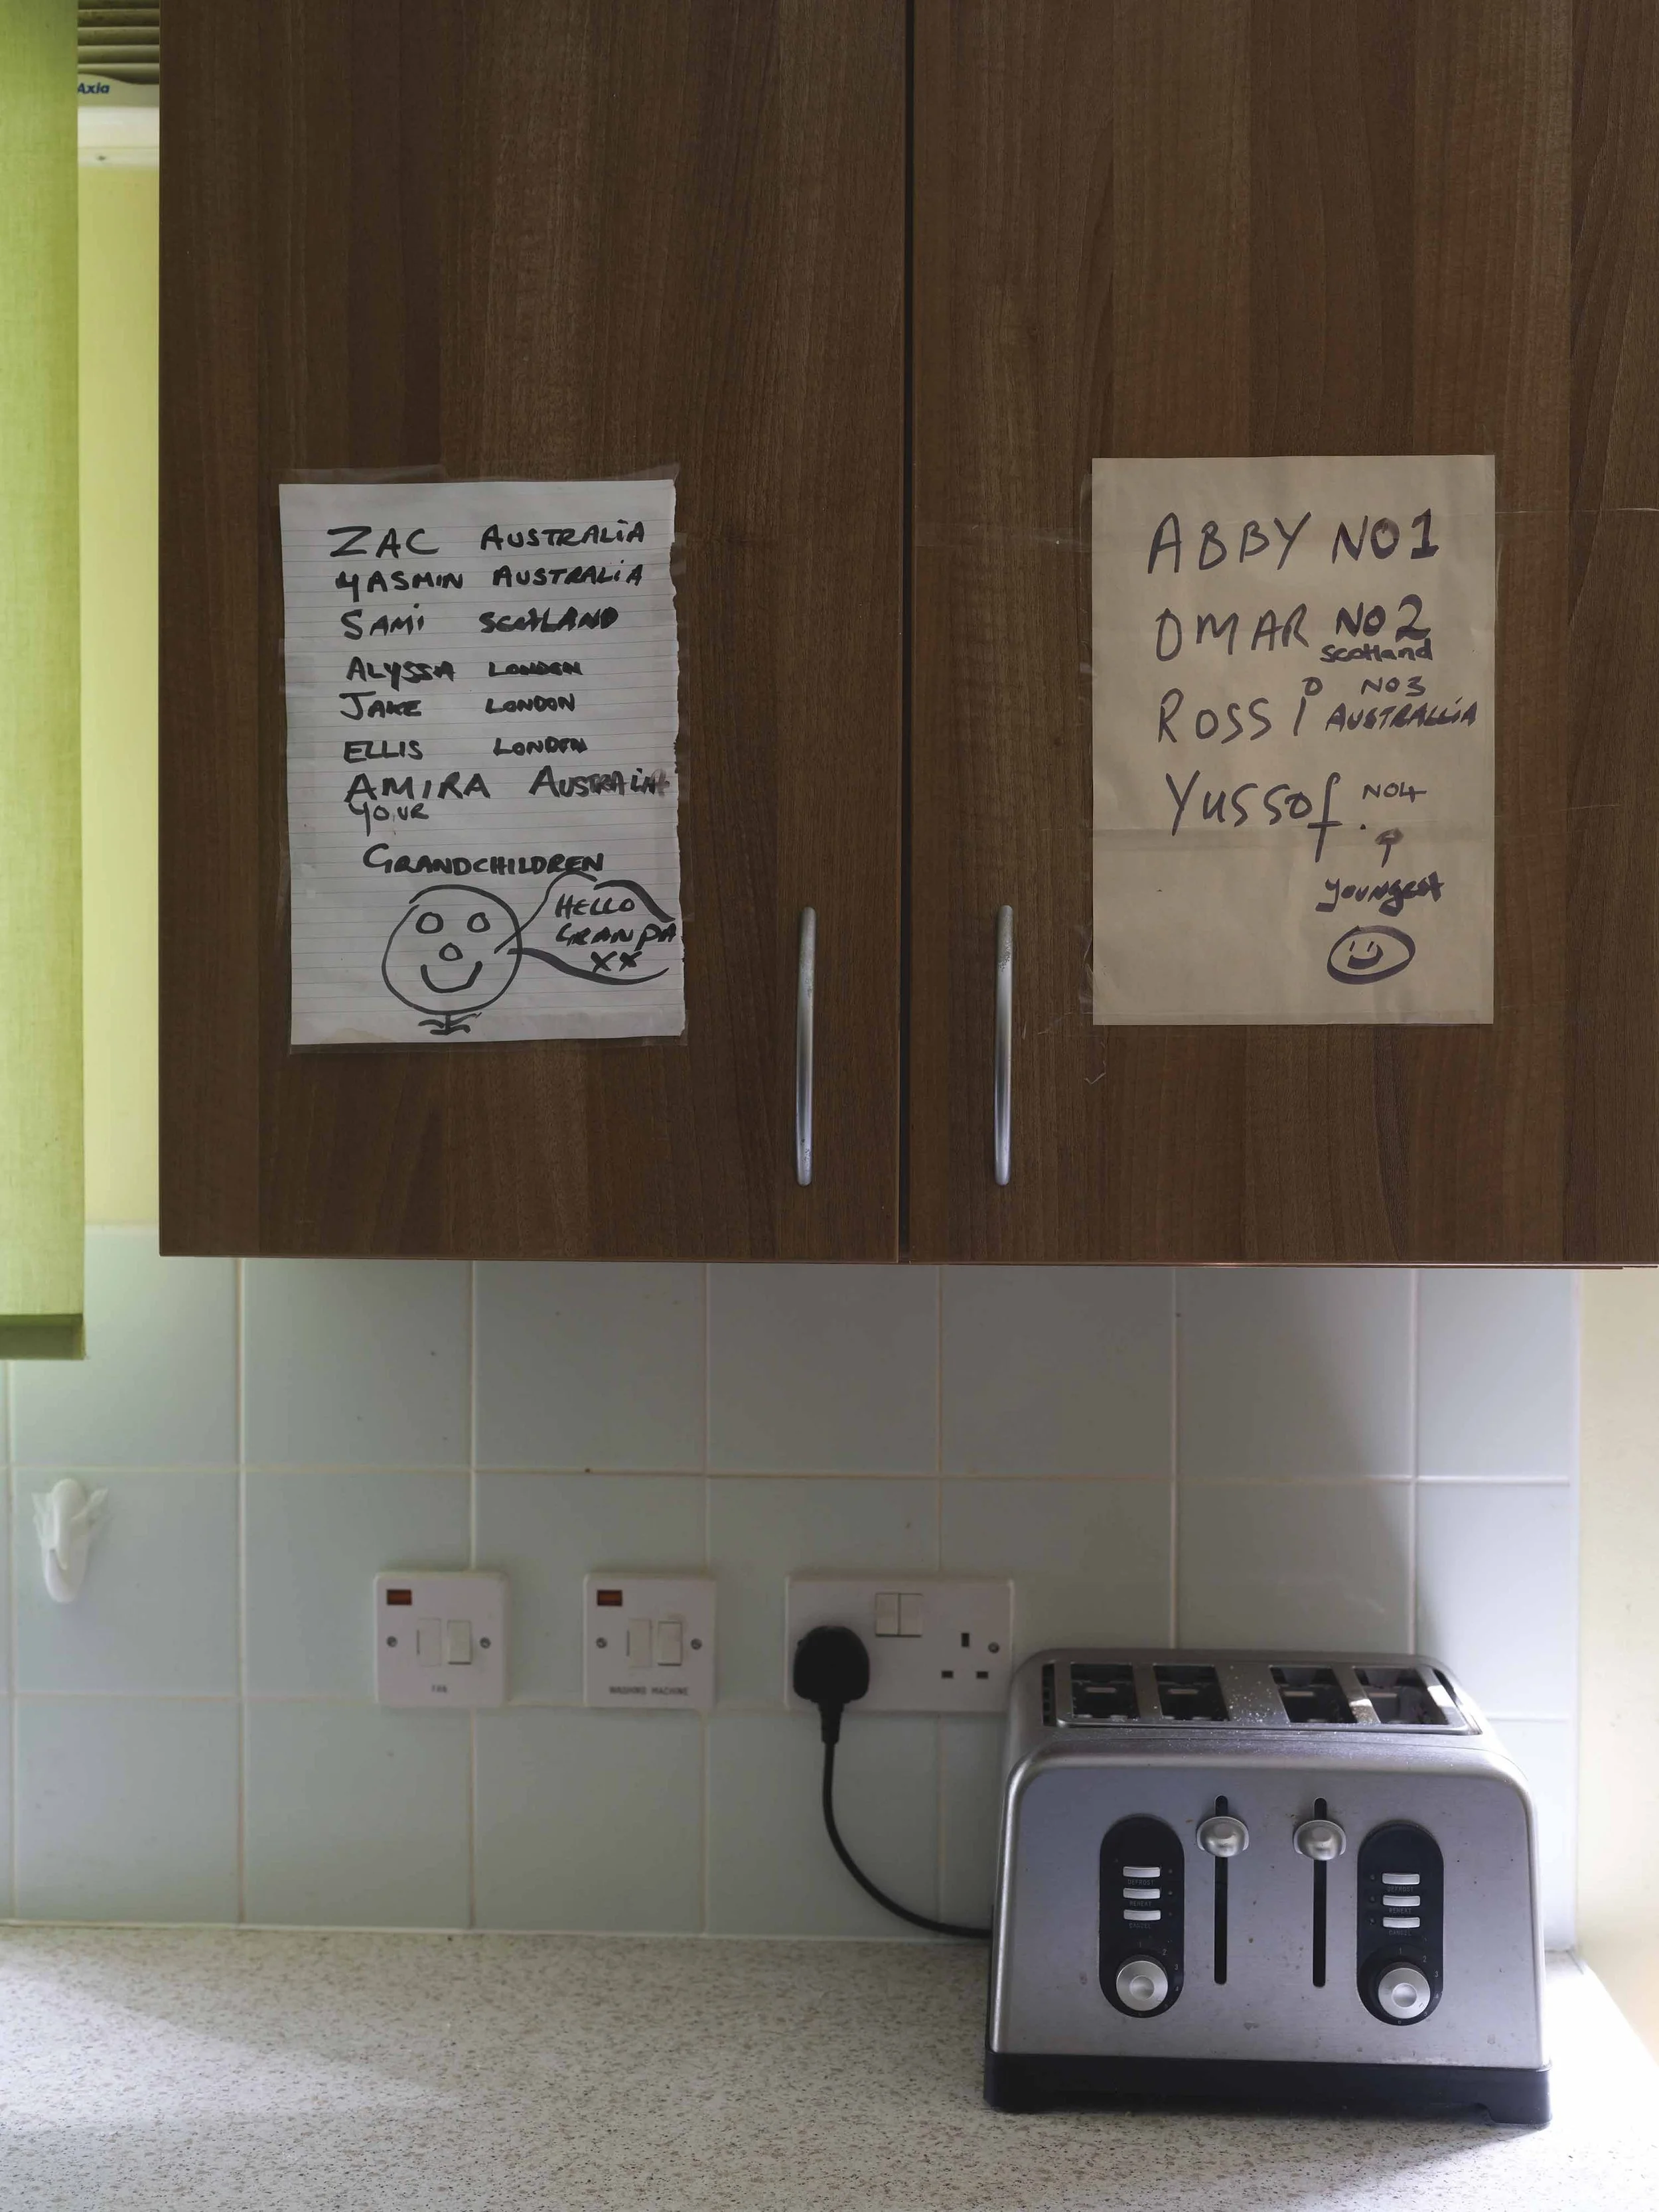 Axia
ZAC AUSTRALIA
YASMIN AUSTRALIA
SAMI SCOTLAND
ALYSSIA LONDON
JAKE LONDON
ELLIS LONDON
AMIRA AUSTRALIA
YOUR
GRANDCHILDREN
HELLO
GRANPA
XX
ABBY NO1
OMAR NO2
Scotland
ROSSI NO3
AUSTRALLIA
YUSSOf NO4
youngest
FAN
WASHING MACHINE
DEFROST
REHEAT
CANCEL
DEFROST
REHEAT
CANCEL